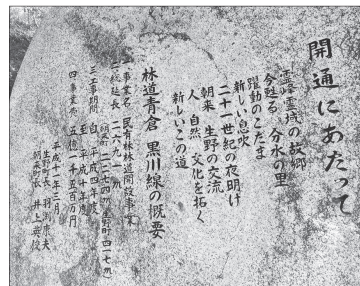 開通にあたって
霊峰霊域の故郷
今甦る 分水の里
躍動のこだま
新しい息吹
二十一世紀の夜明け
朝来 生野の交流
人 自然 文化を拓く
新しいこの道
林道青倉 黒川線の概要
一 事業名 民有林林道開設事業
二 総延長 二六九一m
三 工事期間 自 平成四年度
至 平成十年度
四 事業費 五億一千五百万円
平成十一年二月
生野町長
朝来町長 井上英俊